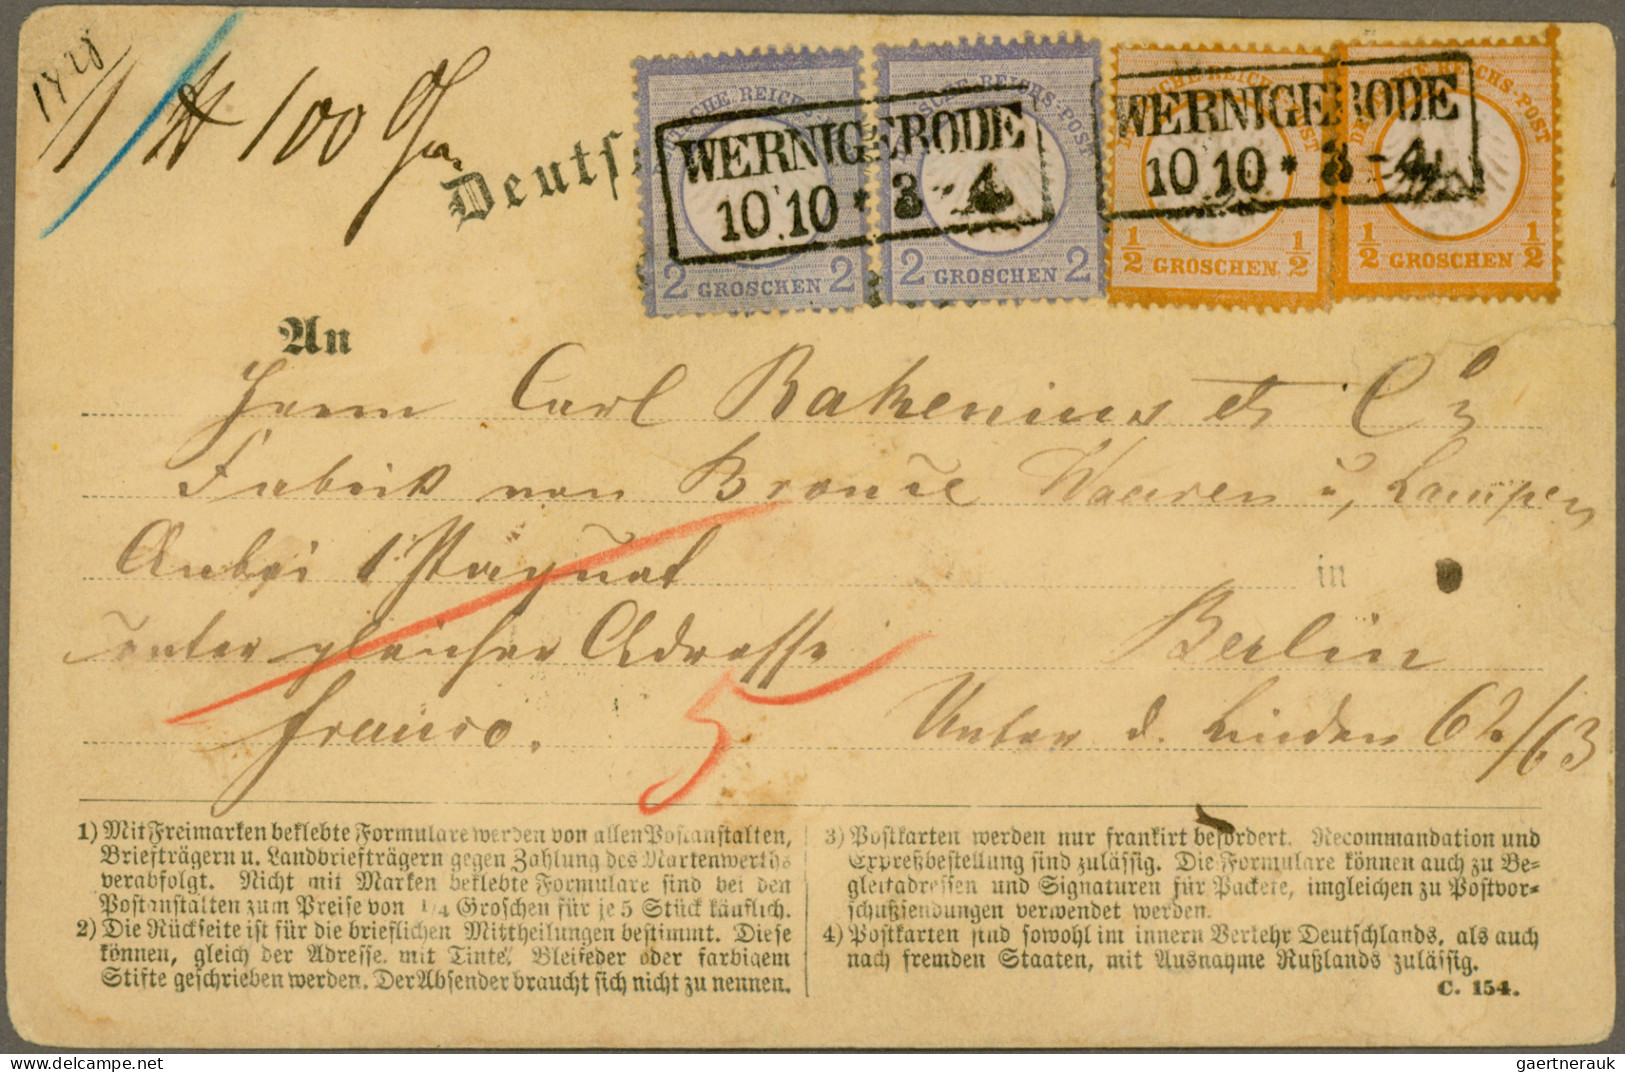 1 ℔ 100 Gr.
Deuts
DEUTSCHE REICHS-POST
2 GROSCHEN 2
DEUTSCHE REICHS-POST
2 GROSCHEN 2
DEUTSCHE REICHS-POST
1/2 GROSCHEN 1/2
DEUTSCHE REICHS-POST
1/2 GROSCHEN 1/2
WERNIGERODE
10 10 * 3 - 4
WERNIGERODE
10 10 * 3 - 4
An
Herrn Carl Rakenius et Co
Fabrik von Bronce Waaren u, Lampen
Anbei 1 Paquet
in
unter gleicher Adresse
Berlin
franco.
5
Unter d. Linden 62/63
1) Mit Freimarken beklebte Formulare werden von allen Postanstalten,
Briefträgern u. Landbriefträgern gegen Zahlung des Markenwerths
verabfolgt. Nicht mit Marken beklebte Formulare sind bei den
Postanstalten zum Preise von 1/4 Groschen für je 5 Stück käuflich.
2) Die Rückseite ist für die brieflichen Mittheilungen bestimmt. Diese
können, gleich der Adresse, mit Tinte, Bleifeder oder farbigem
Stifte geschrieben werden. Der Absender braucht sich nicht zu nennen.
3) Postkarten werden nur frankirt befördert. Recommandation und
Expreßbestellung sind zulässig. Die Formulare können auch zu Be-
gleitadressen und Signaturen für Packete, imgleichen zu Postvor-
schußsendungen verwendet werden.
4) Postkarten sind sowohl im innern Verkehr Deutschlands, als auch
nach fremden Staaten, mit Ausnahme Rußlands zulässig.
C. 154.
www.stampcircuit.com
gaertnerauk